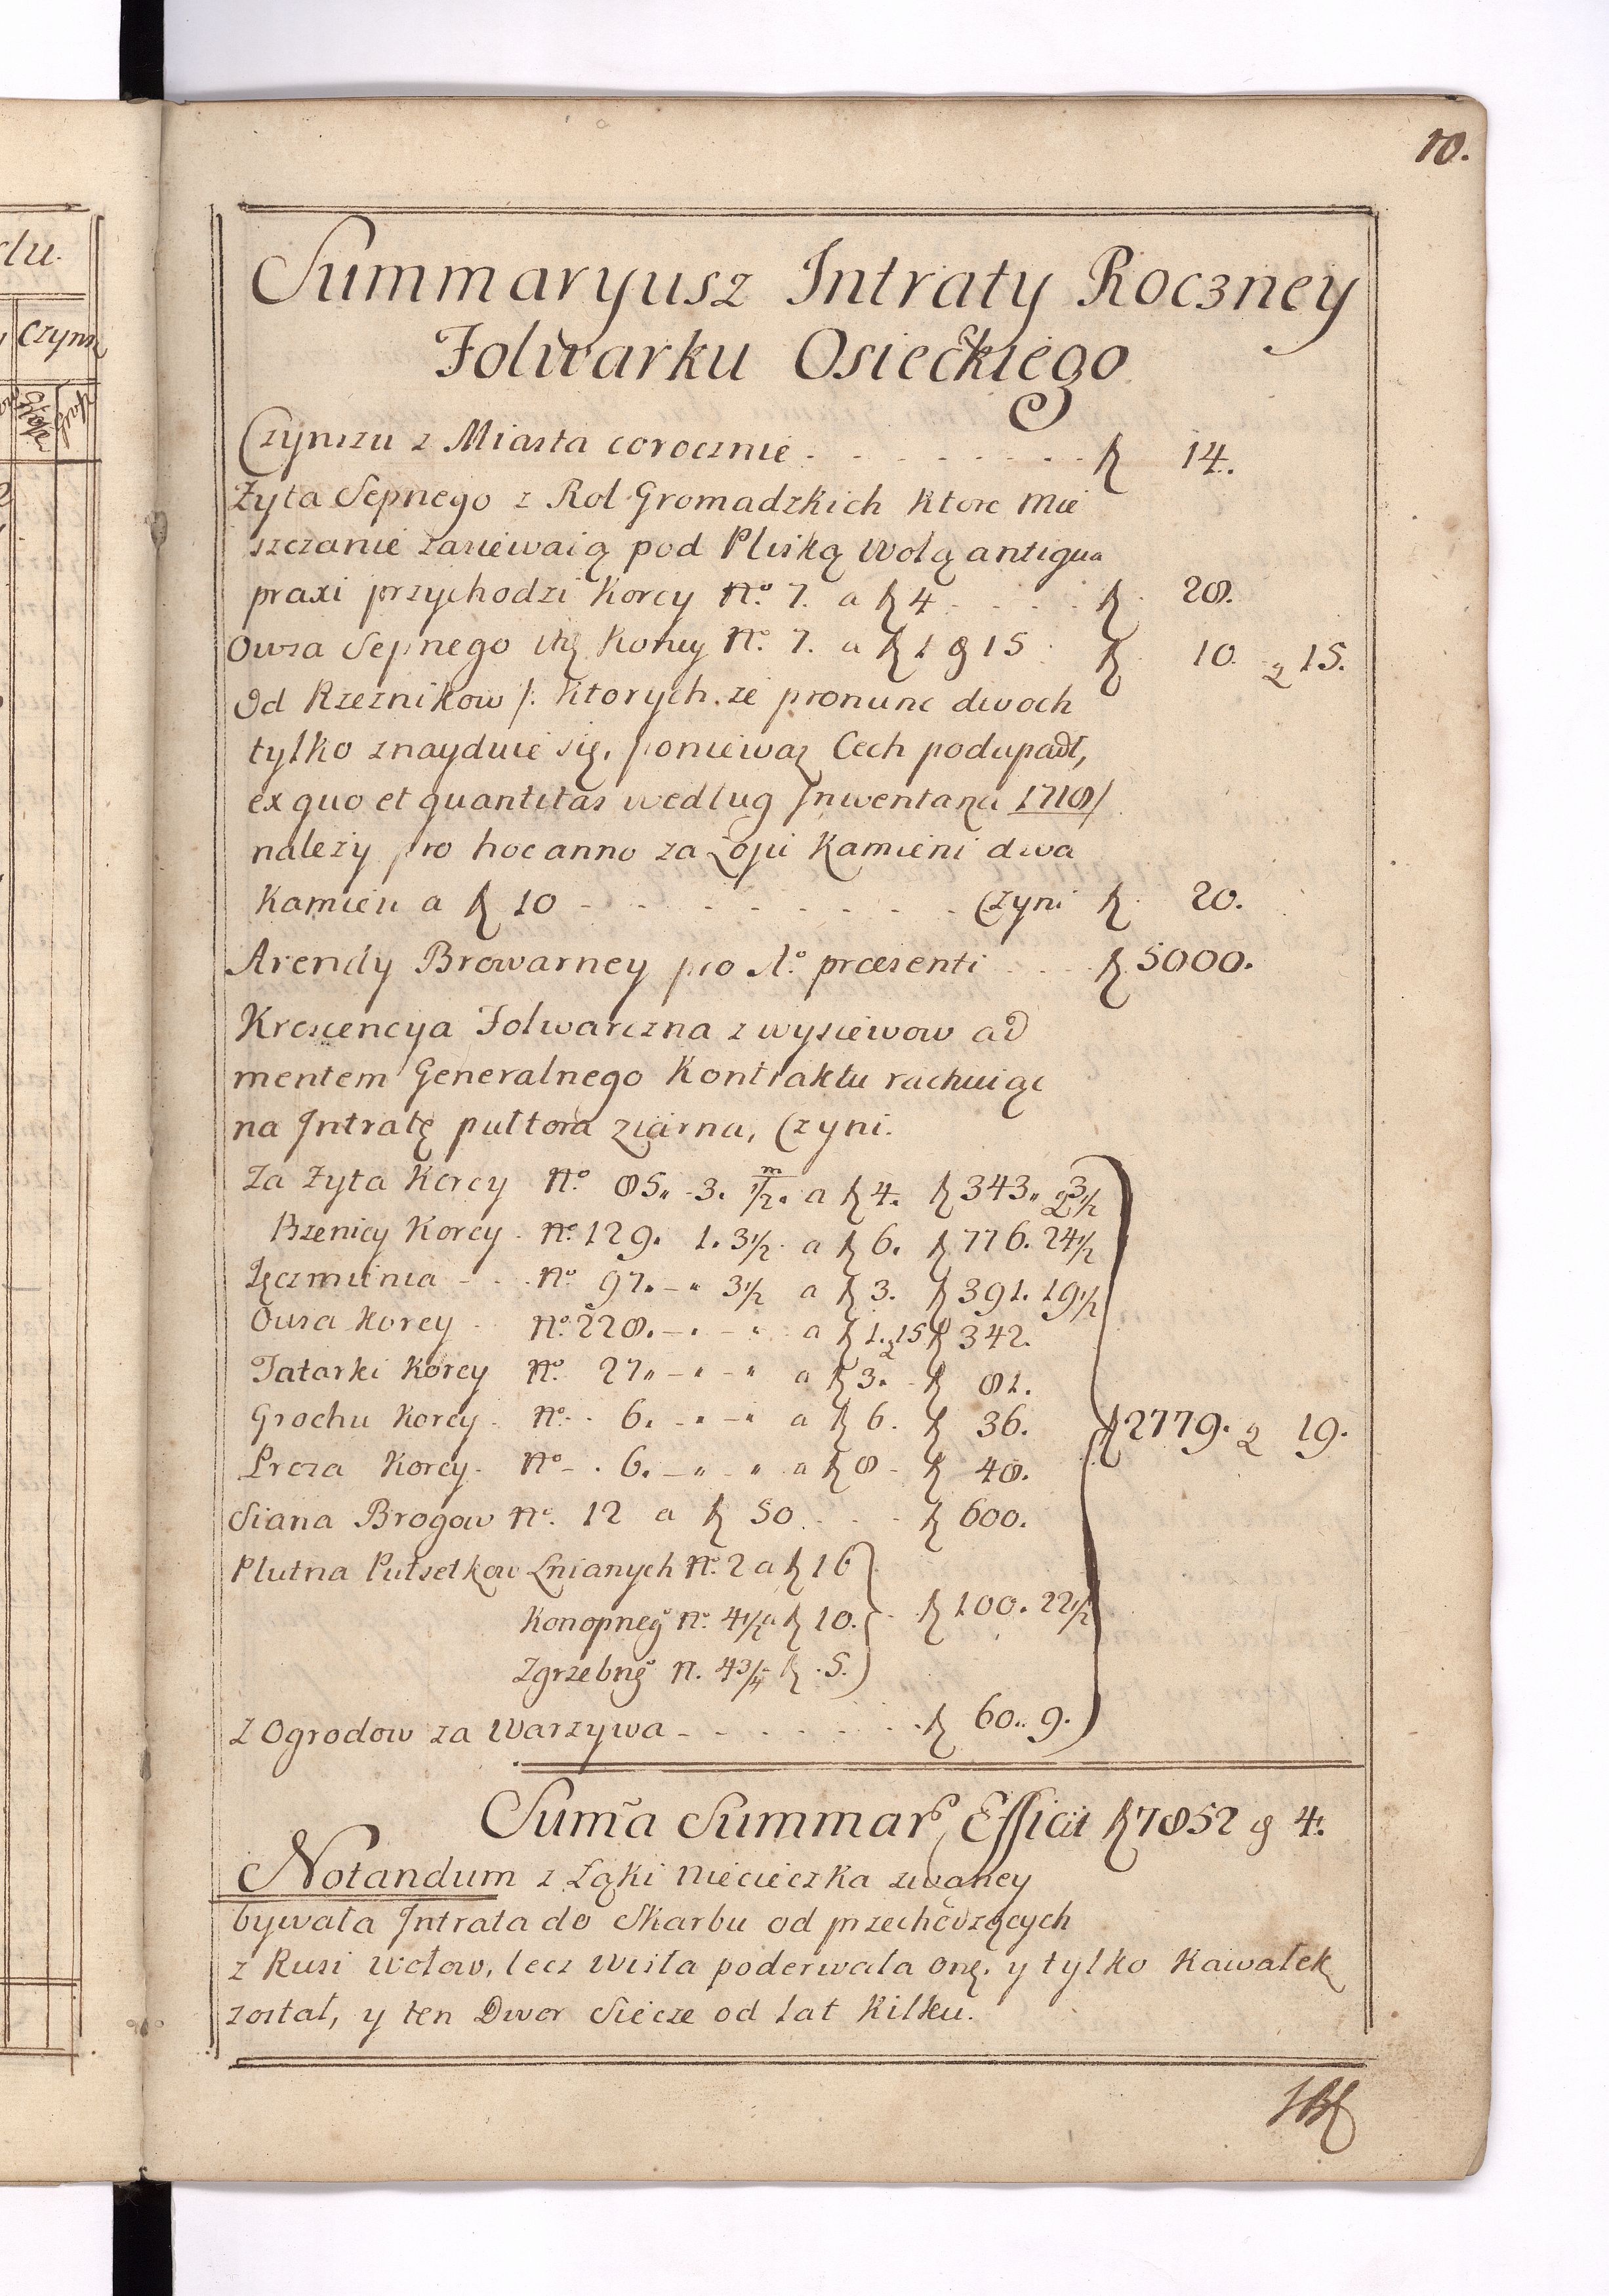 10.
Summaryusz Intraty Roczney
Folwarku Osieckiego
Czynszu z Miasta corocznie ƶ 14.
Żyta Sepnego z Rol Gromadzkich ktore Mie
szczanie zasiewaią pod Pliską Wolą antiqua
praxi przychodzi Korcy No. 7. a ƶ 4 ƶ 28.
Owsa Sepnego Korcy No. 7. a ƶ 1 g 15 ƶ 10. g 15.
Od Rzeznikow /: ktorych ze pronunc dwoch
tylko znayduie się, poniewaz Cech podupadł,
ex quo et quantitas według Inwentarza 1718/
nalezy pro hoc anno za Łoju Kamieni dwa
Kamien a ƶ 10 czyni ƶ 20.
Arendy Browarney pro Ao. præsenti ƶ 5000.
Krescencya Folwarczna z wysiewow ad
mentem Generalnego Kontraktu rachuiąc
na Intratę pułtora ziarna, Czyni.
Za Żyta Korcy No. 85. 3. 1/2. a ƶ 4. ƶ 343. g 3 1/2
Przenicy Korcy No. 129. 1. 3 1/2. a ƶ 6. ƶ 776. 24 1/2
Jęczmienia No. 97. - 3 1/2 a ƶ 3. ƶ 391. 19 1/2
Owsa Korcy No. 228. - - a ƶ 1. g 15 ƶ 342.
Tatarki Korcy No. 27. - - a ƶ 3. ƶ 81.
Grochu Korcy No. 6. - - a ƶ 6. ƶ 36.
ƶ 2779. g 19.
Proza Korcy No. 6. - - a ƶ 8 ƶ 48.
Siana Brogow No. 12 a ƶ 50 ƶ 600.
Plutna Pułsetkow Lnianych No. 2 a ƶ 16
Konopneg° No. 4 1/2 a ƶ 10. ƶ 100. 22 1/2
Zgrzebng° N. 4 3/4 ƶ 5.
Z Ogrodow za Warzywa ƶ 60. 9.
Sum̃a Summar Efficit ƶ 7852 g 4.
Notandum z Łąki Niecieczka zwaney
bywała Intrata do Skarbu od przechodzących
z Rusi Wołow, lecz Wisła poderwała onę, y tylko Kawałek
został, y ten Dwor Siecze od lat kilku.